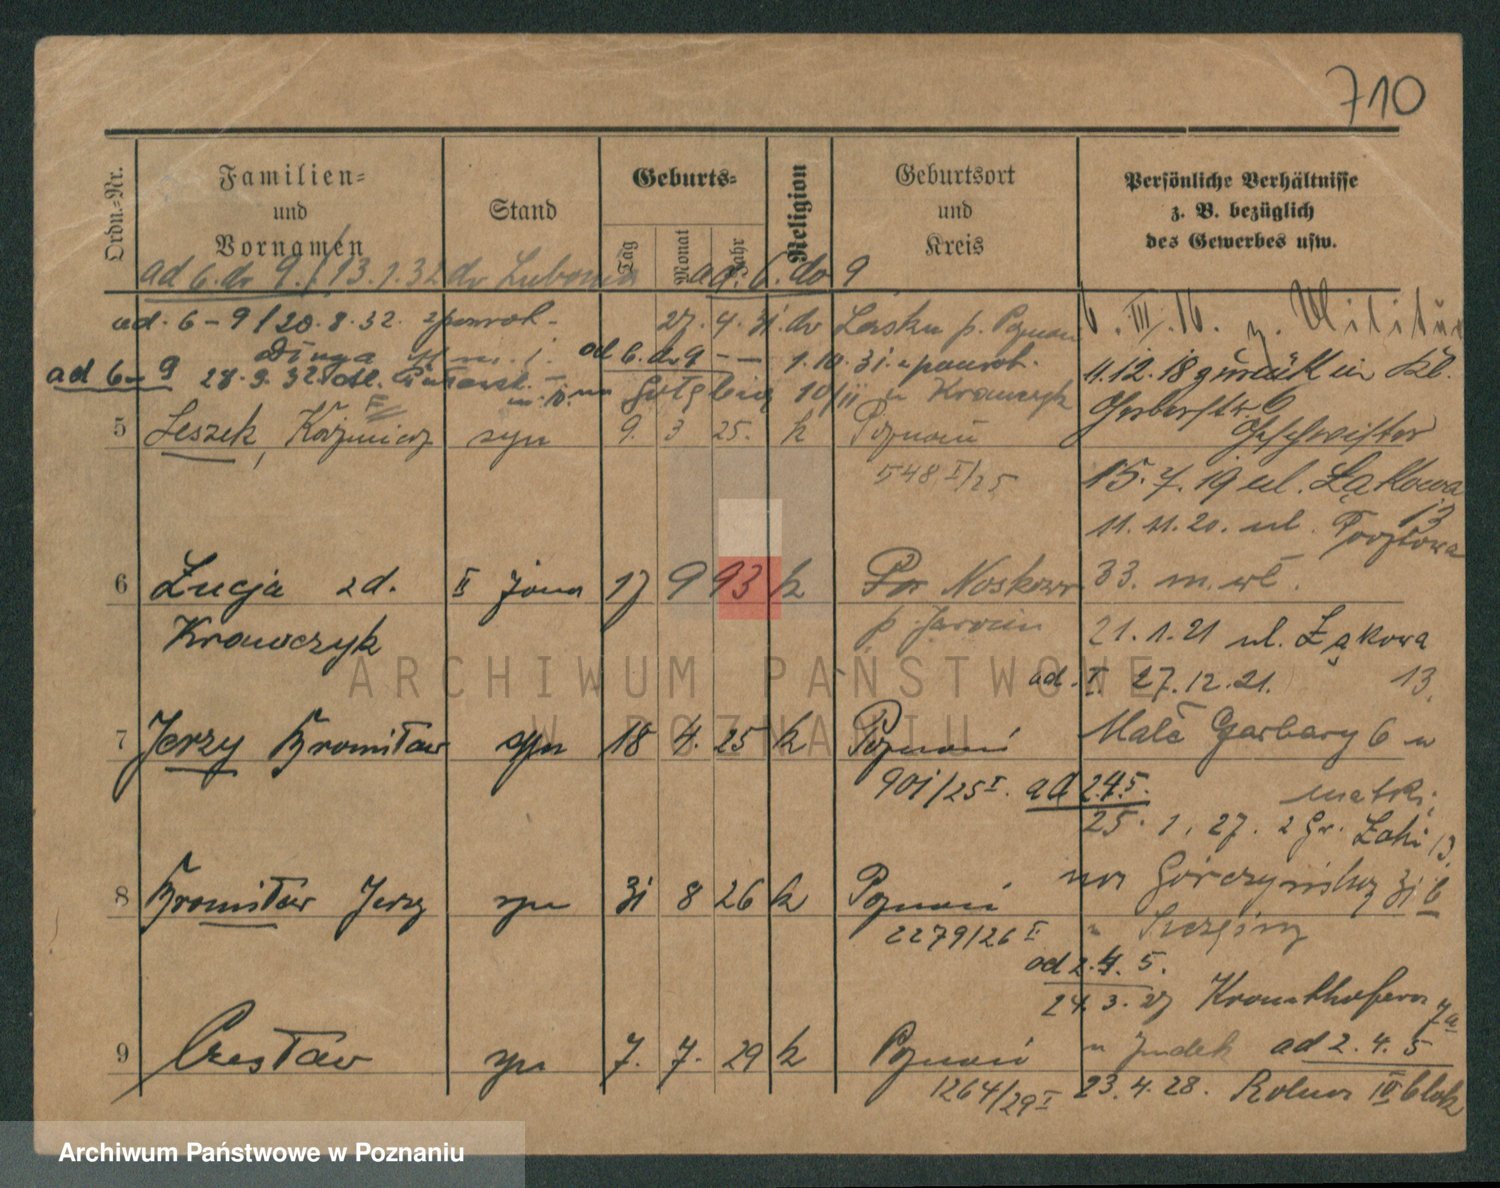 710
Ordn.-Nr.
Familien-
und
Vornamen
Stand
Geburts-
Tag
Monat
Jahr
Religion
Geburtsort
und
Kreis
Persönliche Verhältnisse
z. B. bezüglich
des Gewerbes usw.
ad 6. do 9. 13.1.32 do Lubonia ad. 6. do 9
ad. 6-9 / 20.8.32. 27.4.31. do p. Poznań
6. III. 16. z. Militär
ad 6. do 9 — 1.10.31. z
ad 6-9 28.9.32
11.12.18 zurück in Kl.
10/11 u Krawczyk
Gerberstr. 6
5 Leszek, Kazimierz syn 9. 3 25. k Poznań
Geschwister
548 I/25
15.7.19 ul. Łąkowa
13
11.11.20. ul.
6 Łucja zd. II żona 17 9 93 k Noskowo
33. m. wł.
Krawczyk
p. Jarocin
21.1.21 ul. Łąkowa
13.
ad. I. 27.12.21.
7 Jerzy Bronisław syn 18 4. 25 k Poznań
Małe Garbary 6 u
matki
901/25 I. ad 2.4.5.
25. 1. 27. z Gr.
13.
8 Bronisław Jerzy syn 31 8 26 k Poznań
31 b
2279/26 I
ad 2.4.5.
24.3.27
7a
9 Czesław syn 7. 7. 29 k Poznań
u ad 2.4.5
1264/29 I
23.4.28. Rolna IV blok
ARCHIWUM PAŃSTWOWE
W POZNANIU
Archiwum Państwowe w Poznaniu